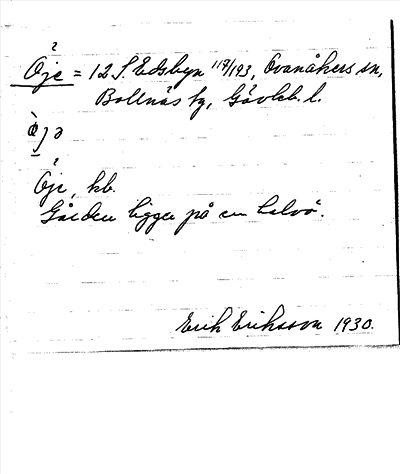 Öje = 12 S. Edsbyn 117/193, Ovanåkers sn,
Bollnäs tg, Gävleb. l.
Öje, kb.
Gården ligger på en halvö.
Erik Eriksson 1930.